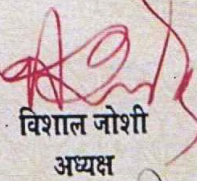 विशाल जोशी
अध्यक्ष